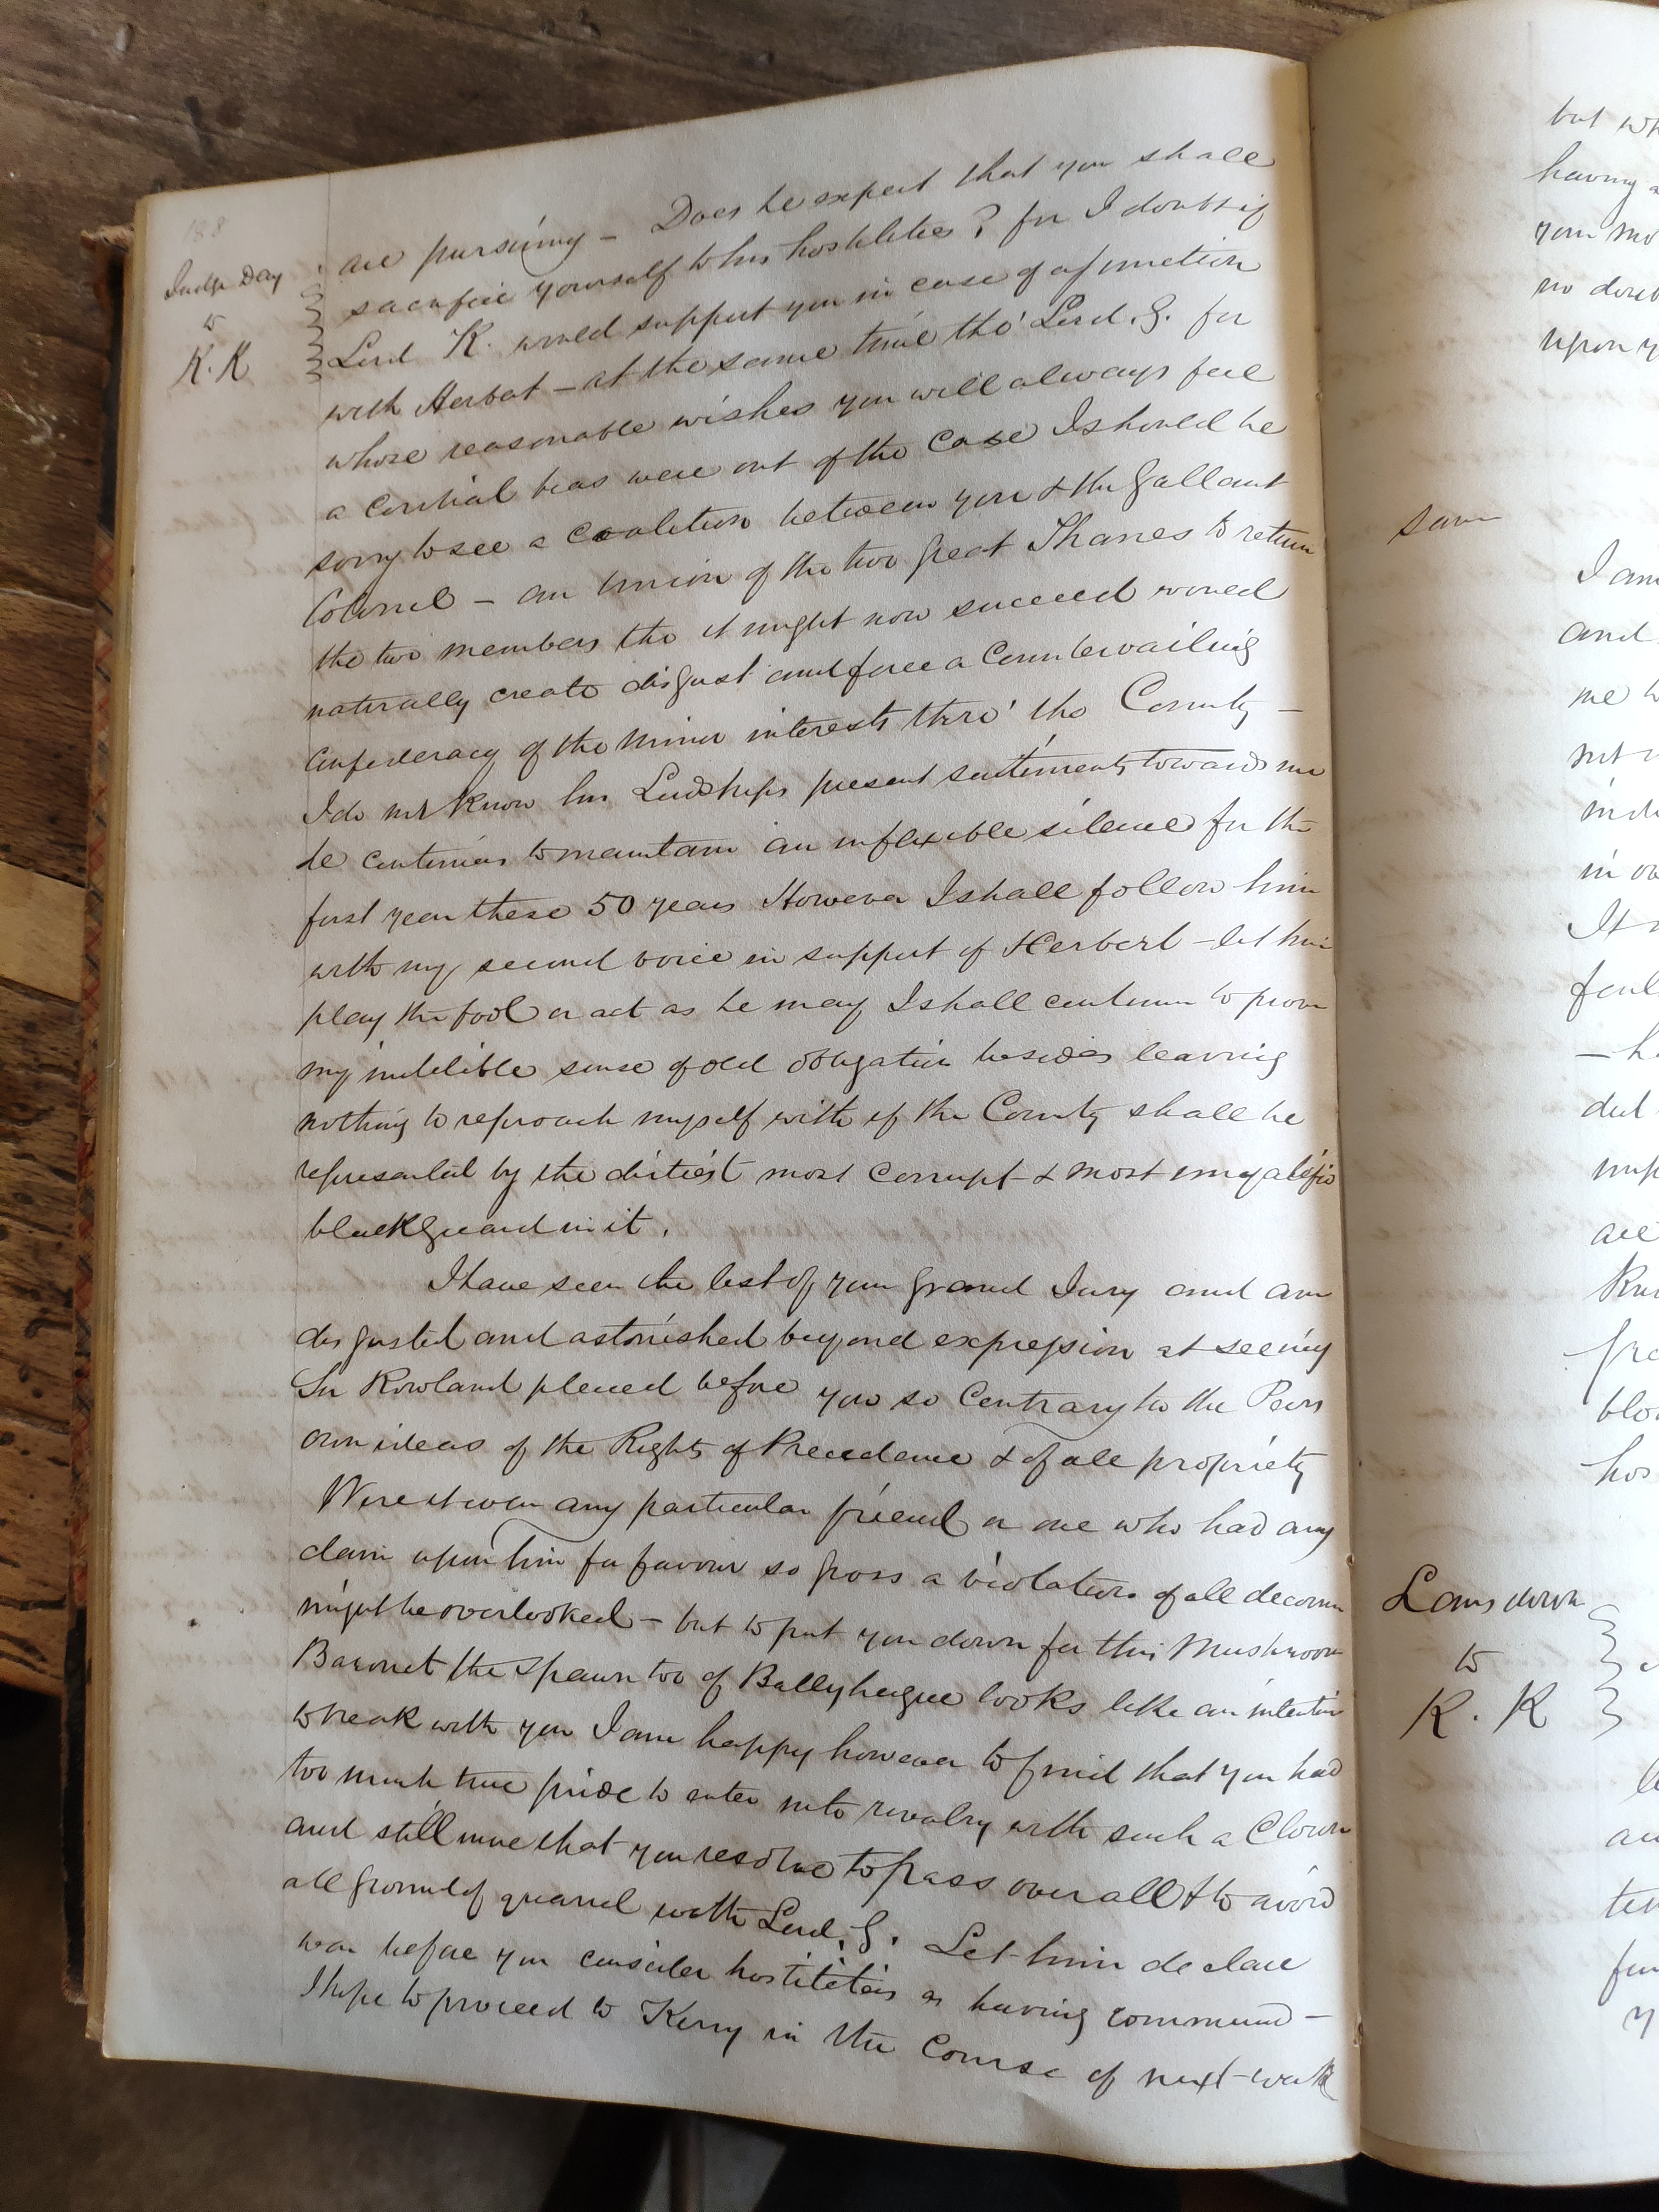 188
Judge Day
to
K. K
are pursuing – Does he expect that you shall
sacrifice yourself to his hostilities? for I doubt if
Lord K. would support you in case of a junction
with Herbert – at the same time tho' Lord. G. for
whose reasonable wishes you will always feel
a cordial bias were out of the case I should be
sorry to see a coalition between you & the Gallant
Colonel – an Union of the two great Thanes to return
the two members tho it might now succeed would
naturally create disgust and force a Countervailing
Confederacy of the Minor interests thro' the County –
I do not know his Lordships present sentiments towards me
he continues to maintain an inflexible silence for the
first year these 50 years However I shall follow him
with my second voice in support of Herbert – let him
play the fool or act as he may I shall continue to prove
my indelible sense of old obligation besides leaving
nothing to reproach myself with if the County shall be
represented by the dirtiest most corrupt & most
blackguard in it.
I have seen the list of your Grand Jury and am
disgusted and astonished beyond expression at seeing
Sir Rowland placed before you so Contrary to the Peers
own ideas of the Rights of Precedence & of all propriety
Were it even any particular friend or one who had any
claim upon him for favour so gross a violation of all decorum
might be overlooked – but to put you down for this Mushroom
Baronet the spawn too of Ballyheigue looks like an intention
to break with you I am happy however to find that you had
too much true pride to enter into rivalry with such a Clown
and still more that you resolve to pass over all & to avoid
all ground of quarrel with Lord. G. Let him declare
war before you consider hostilities as having commened –
I hope to proceed to Kerry in the Course of next week
but wh
having a
your mo
no doub
upon y
same
I am
and
me t
not
in
It
–h
ded
imp
are
blo
hos
Lansdown
to
K. K